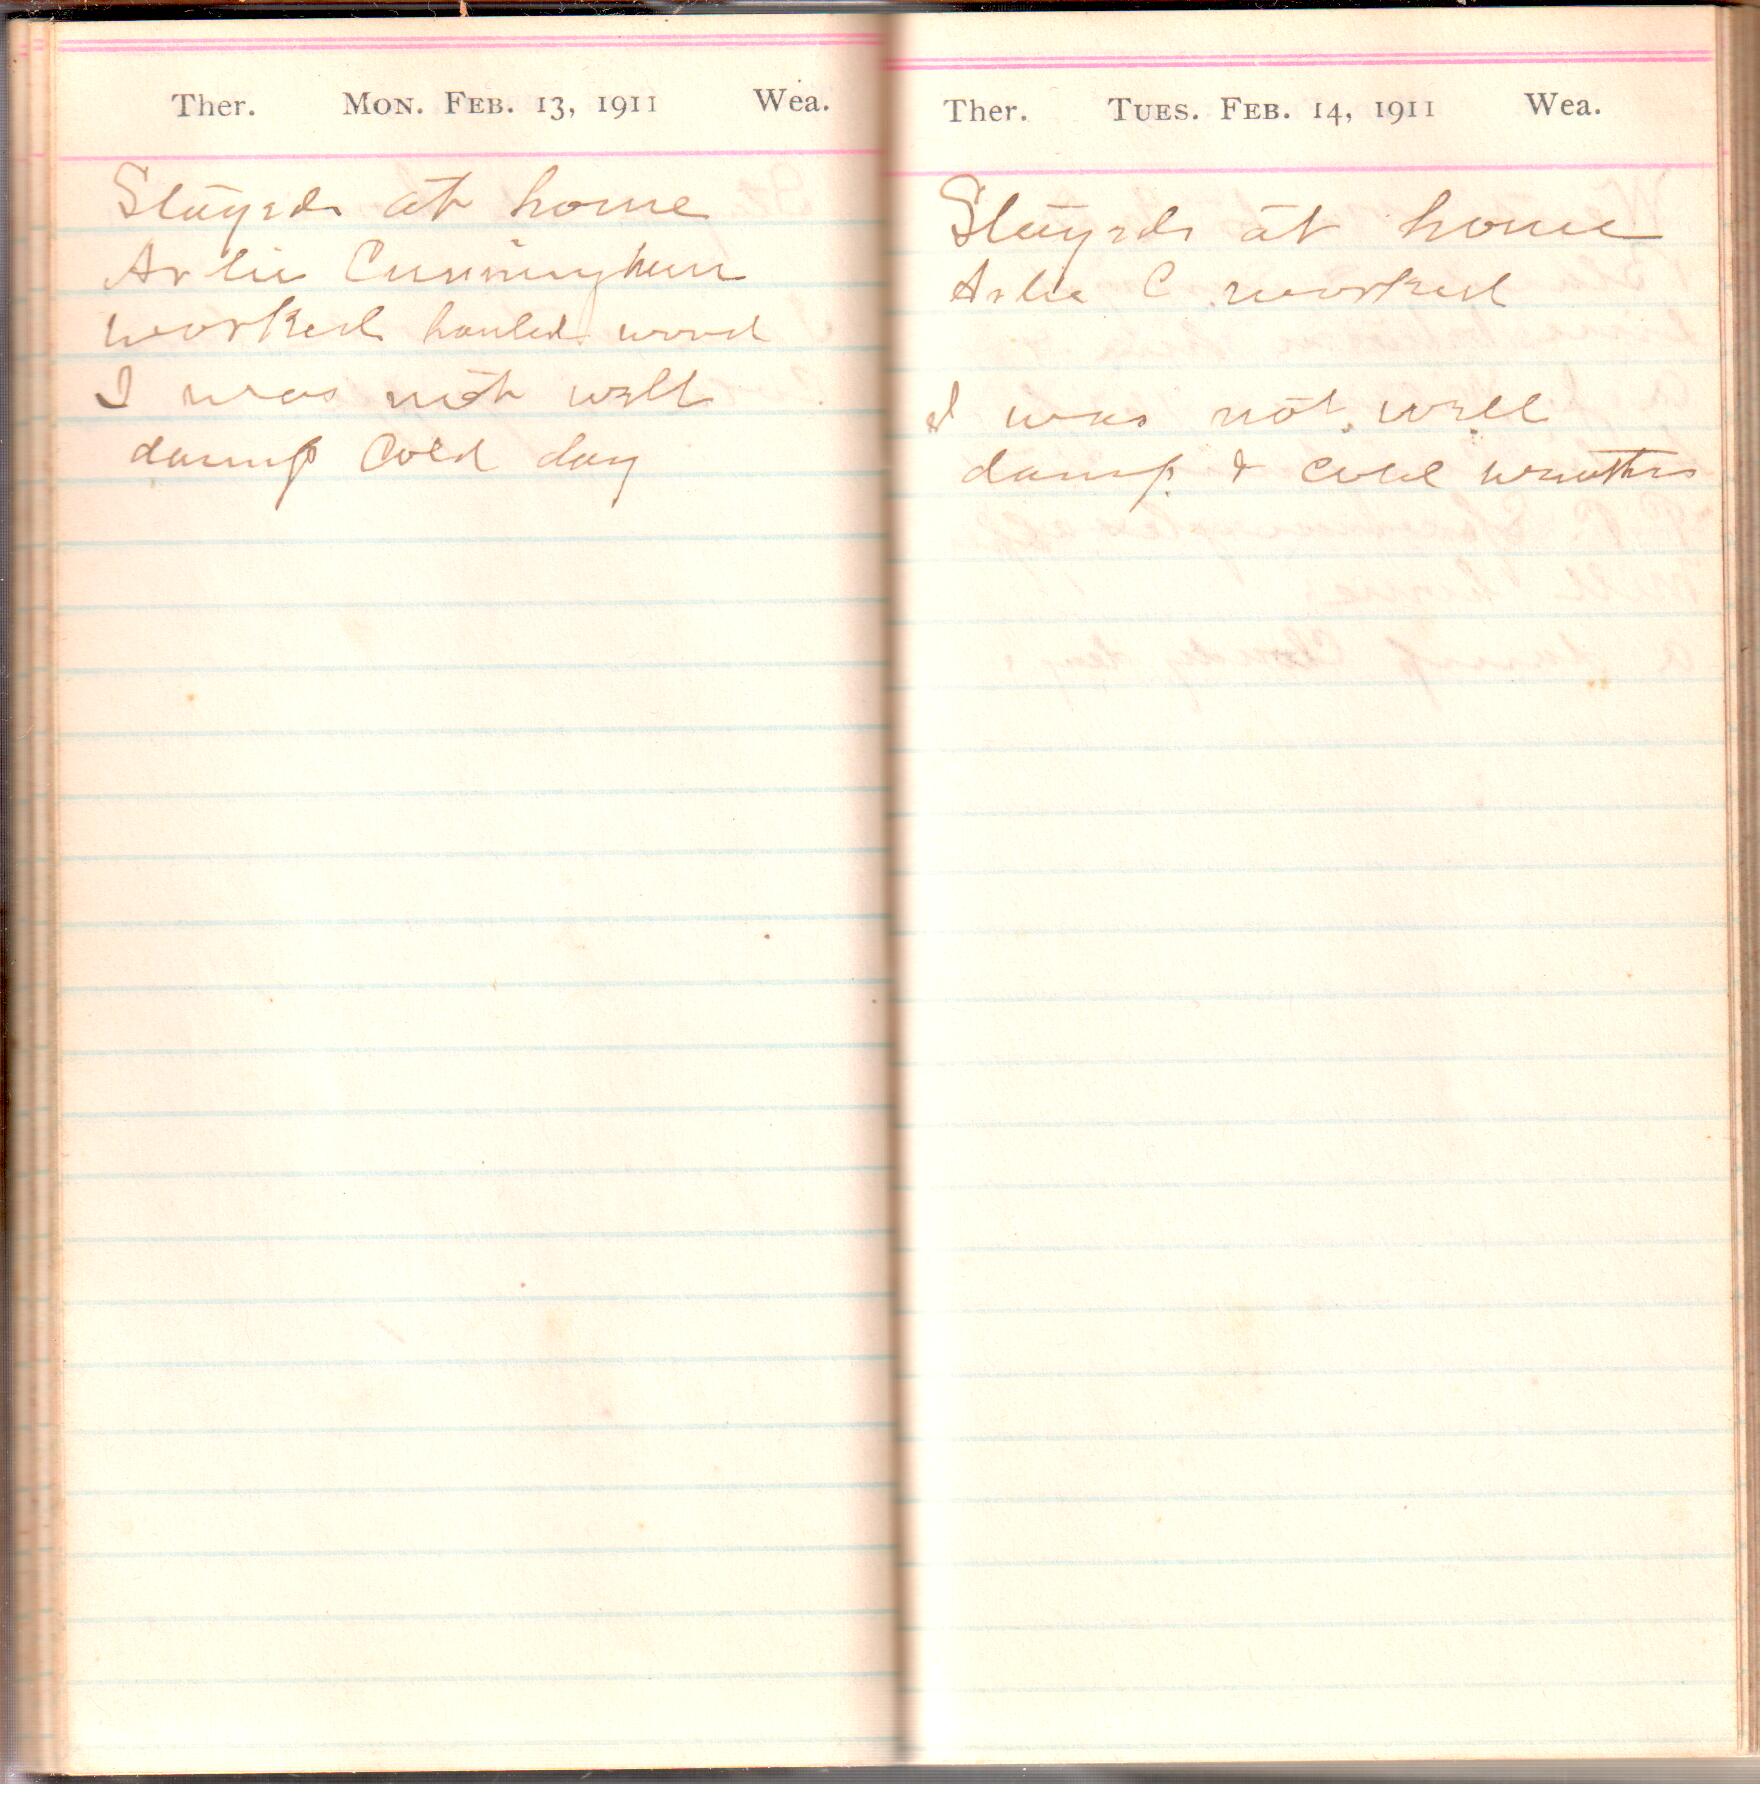 Ther. Mon. Feb. 13, 1911 Wea.
Stayed at home
Arlie Cunningham
worked hauled wood
I was not well
damp Cold day
Ther. Tues. Feb. 14, 1911 Wea.
Stayed at home
Arlie C. worked
I was not well
damp & cold weather